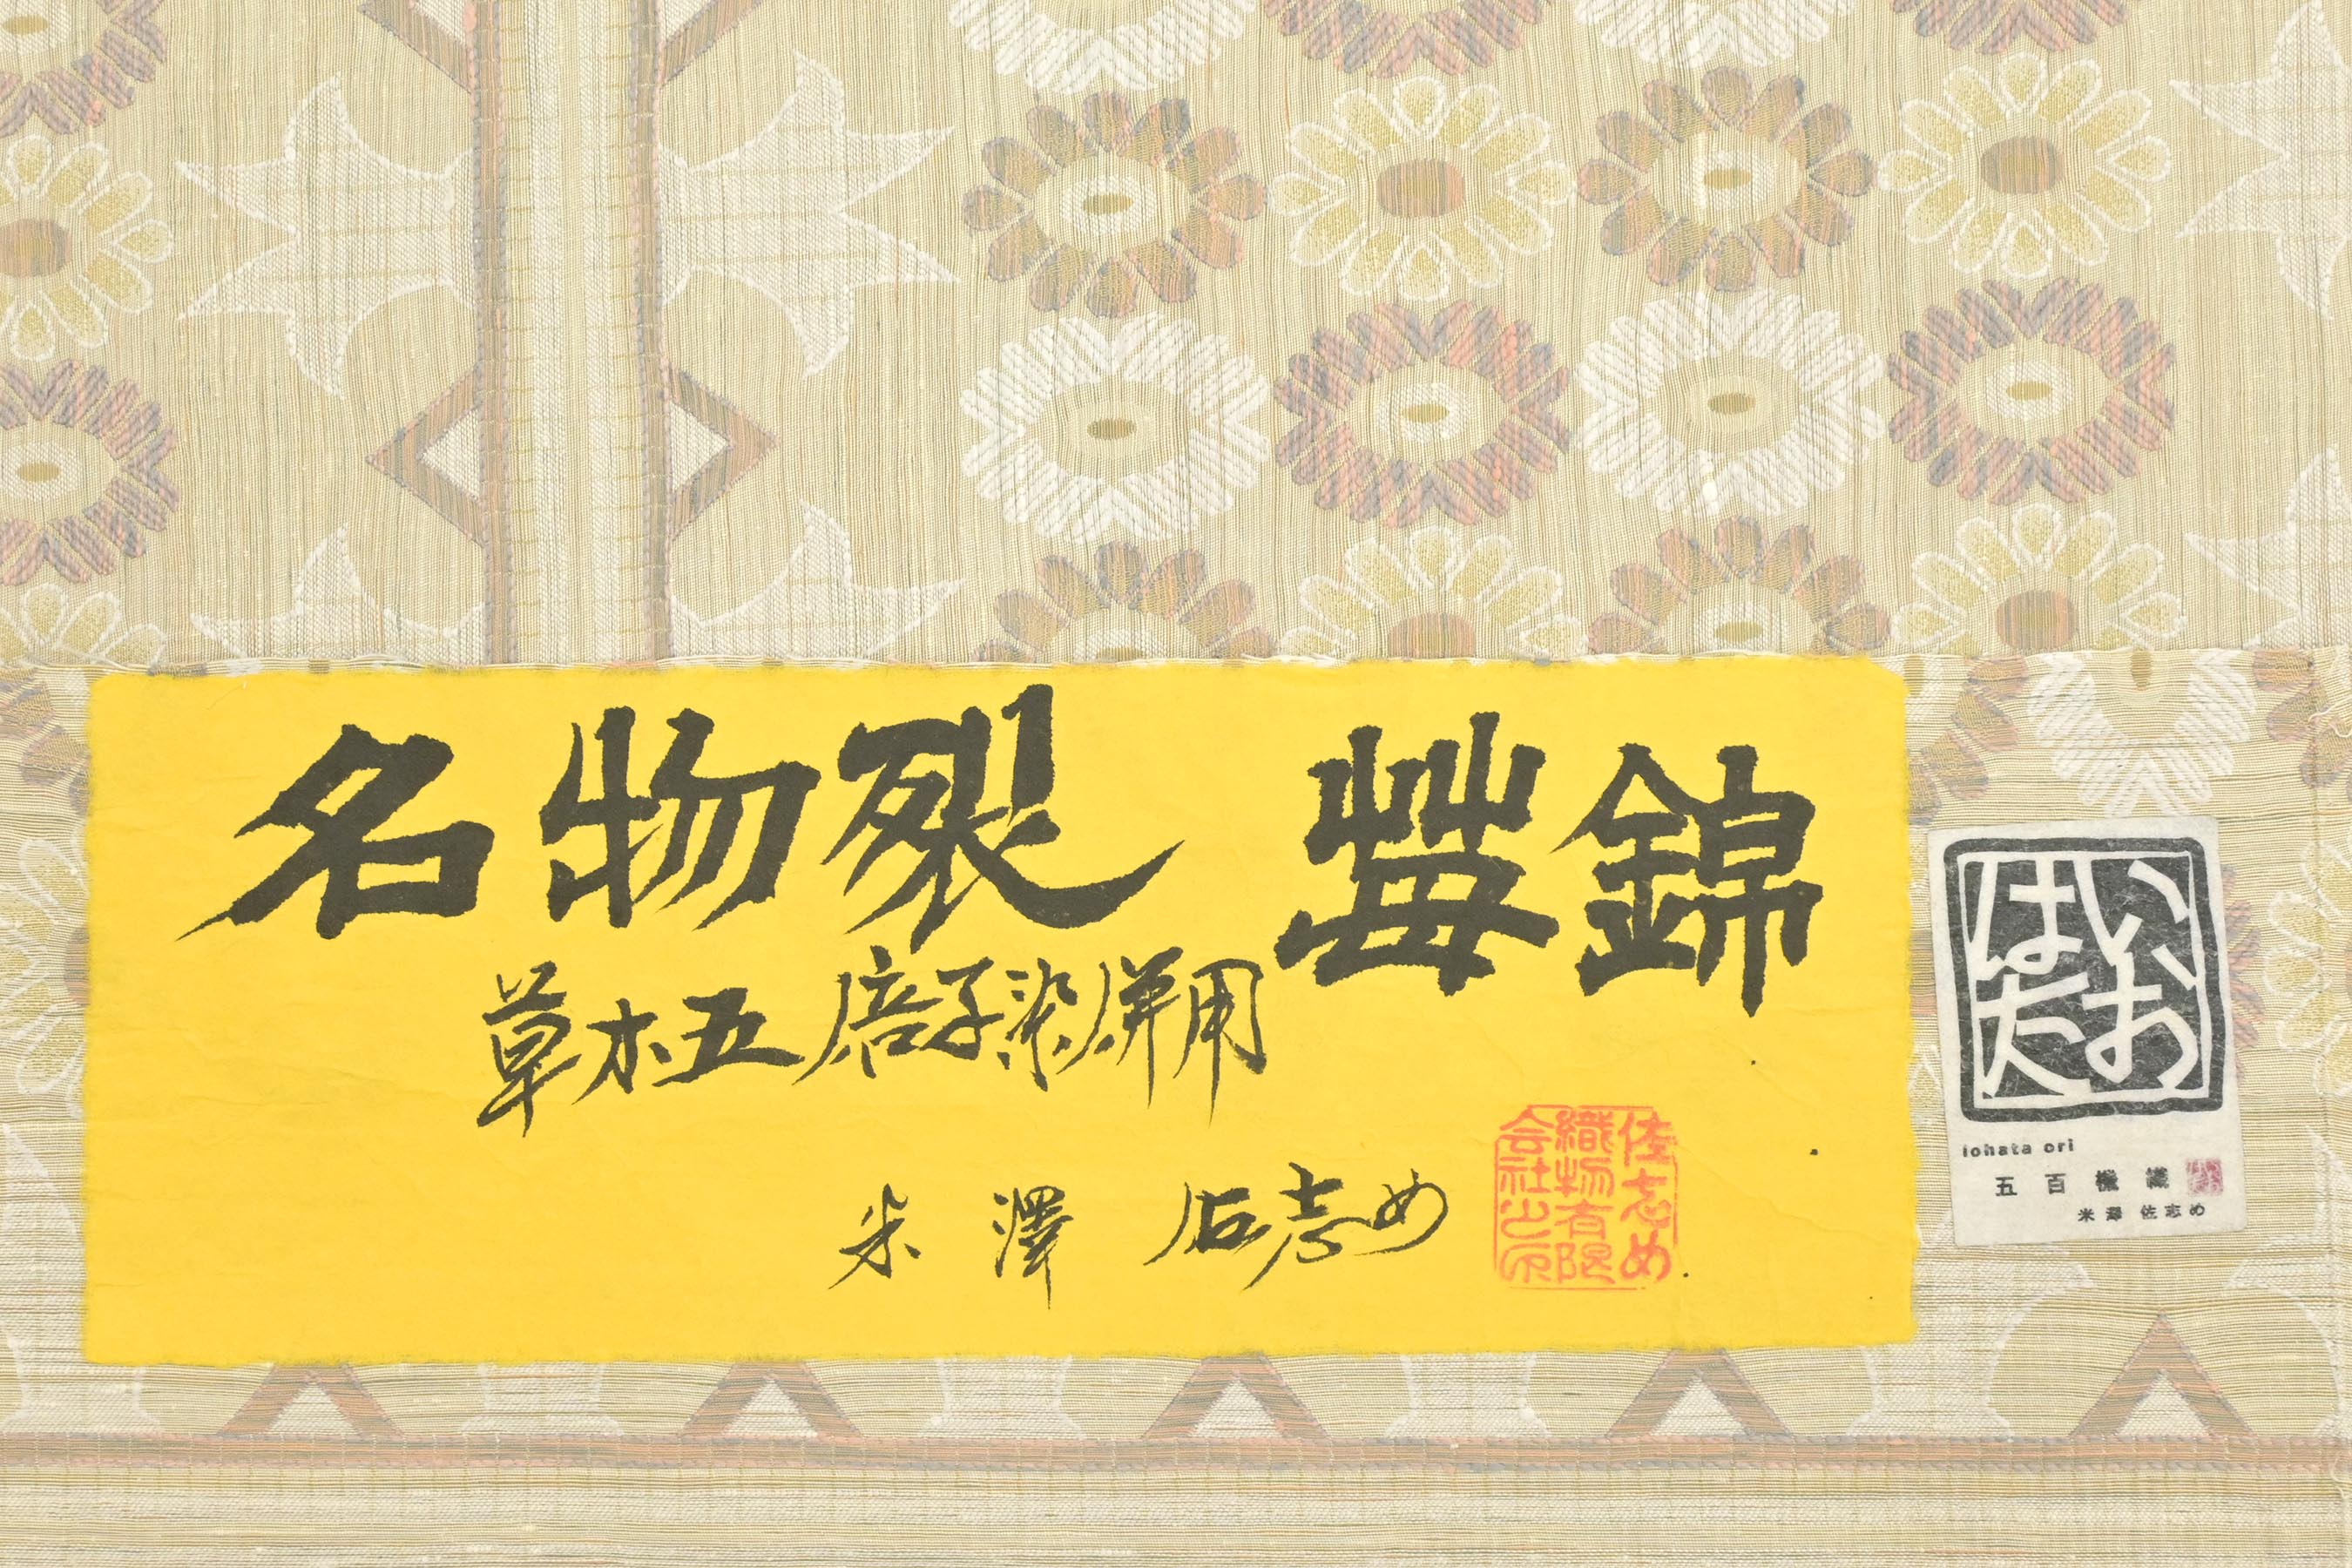 名物裂 苺錦
草木五倍子染併用
米澤 佐志め
佐志め
織物有限
会社之印
いお
はた
iohata ori
五百機織
米澤 佐志め